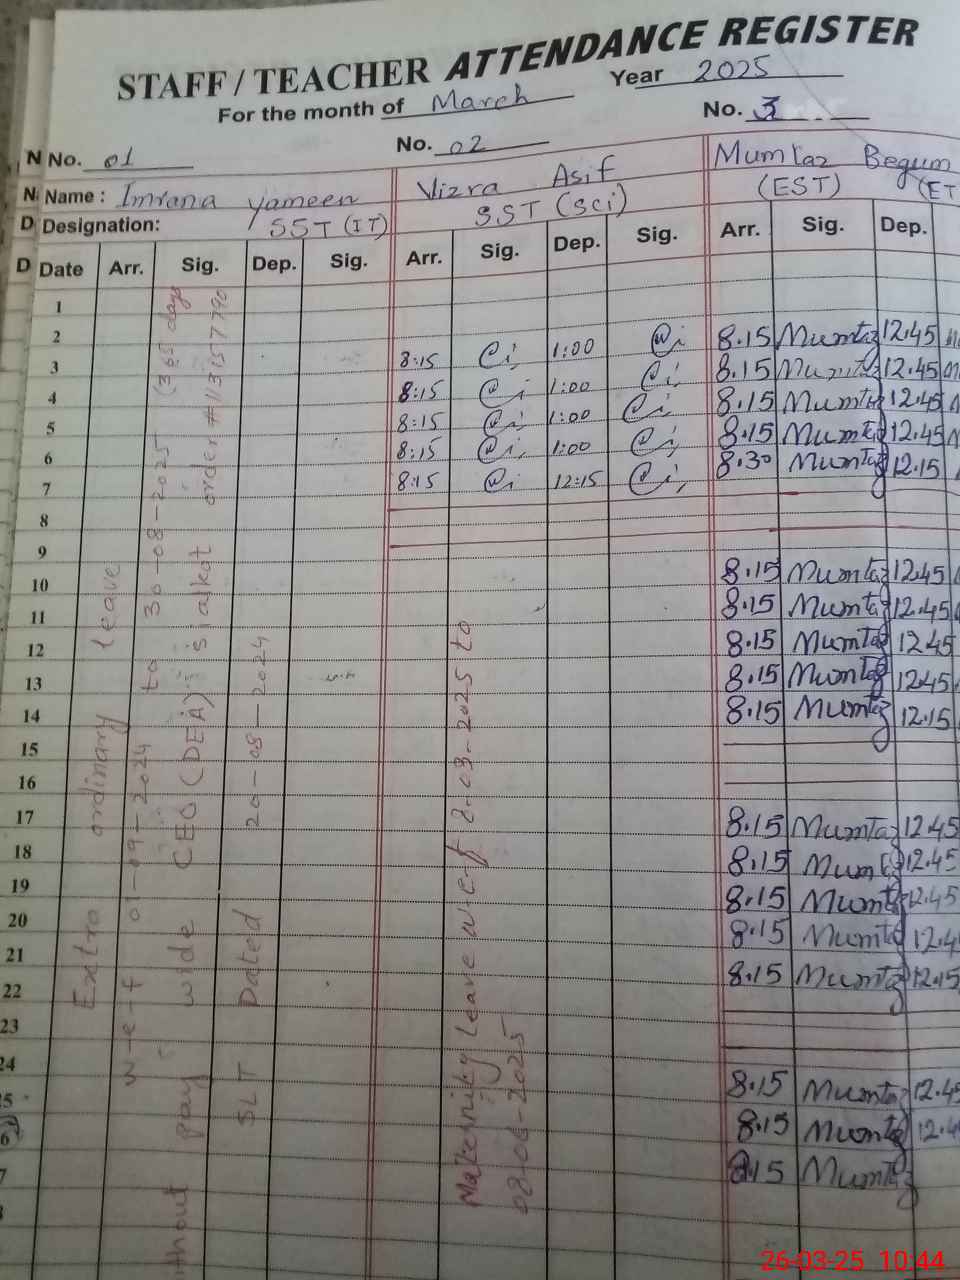 STAFF / TEACHER ATTENDANCE REGISTER
For the month of March Year 2025
N No. 01 No. 02 No. 3
N Name : Imrana Yameen Vizra Asif Mumtaz Begum
D Designation: SST (IT) SST (Sci) (EST) (ET
D Date Arr. Sig. Dep. Sig. Arr. Sig. Dep. Sig. Arr. Sig. Dep.
1
2
3 8:15 1:00 8.15 Mumtaz 12.45
4 8:15 1:00 8.15 Mumtaz 12.45
5 8:15 1:00 8.15 Mumtaz 12.45
6 8:15 1:00 8.15 Mumtaz 12.45
7 8:15 12:15 8.30 Mumtaz 12.15
8
9
10 8.15 Mumtaz 12.45
11 8.15 Mumtaz 12.45
12 8.15 Mumtaz 12.45
13 8.15 Mumtaz 12.45
14 8.15 Mumtaz 12.15
15
16
17 8.15 Mumtaz 12.45
18 8.15 Mumtaz 12.45
19 8.15 Mumtaz 12.45
20 8.15 Mumtaz 12.4
21 8.15 Mumtaz 12.15
22
23
24 8.15 Mumtaz 12.45
5 8.15 Mumtaz 12.4
6 8.15 Mumtaz
7
Extra ordinary leave
w-e-f 01-09-2024 to 30-08-2025 (365 days
ithout pay wide CEO (DEA) sialkot order #113157790
SLT Dated 20-08-2024
Maternity leave w-e-f 8-03-2025 to
08-06-2025
26-03-25 10:44